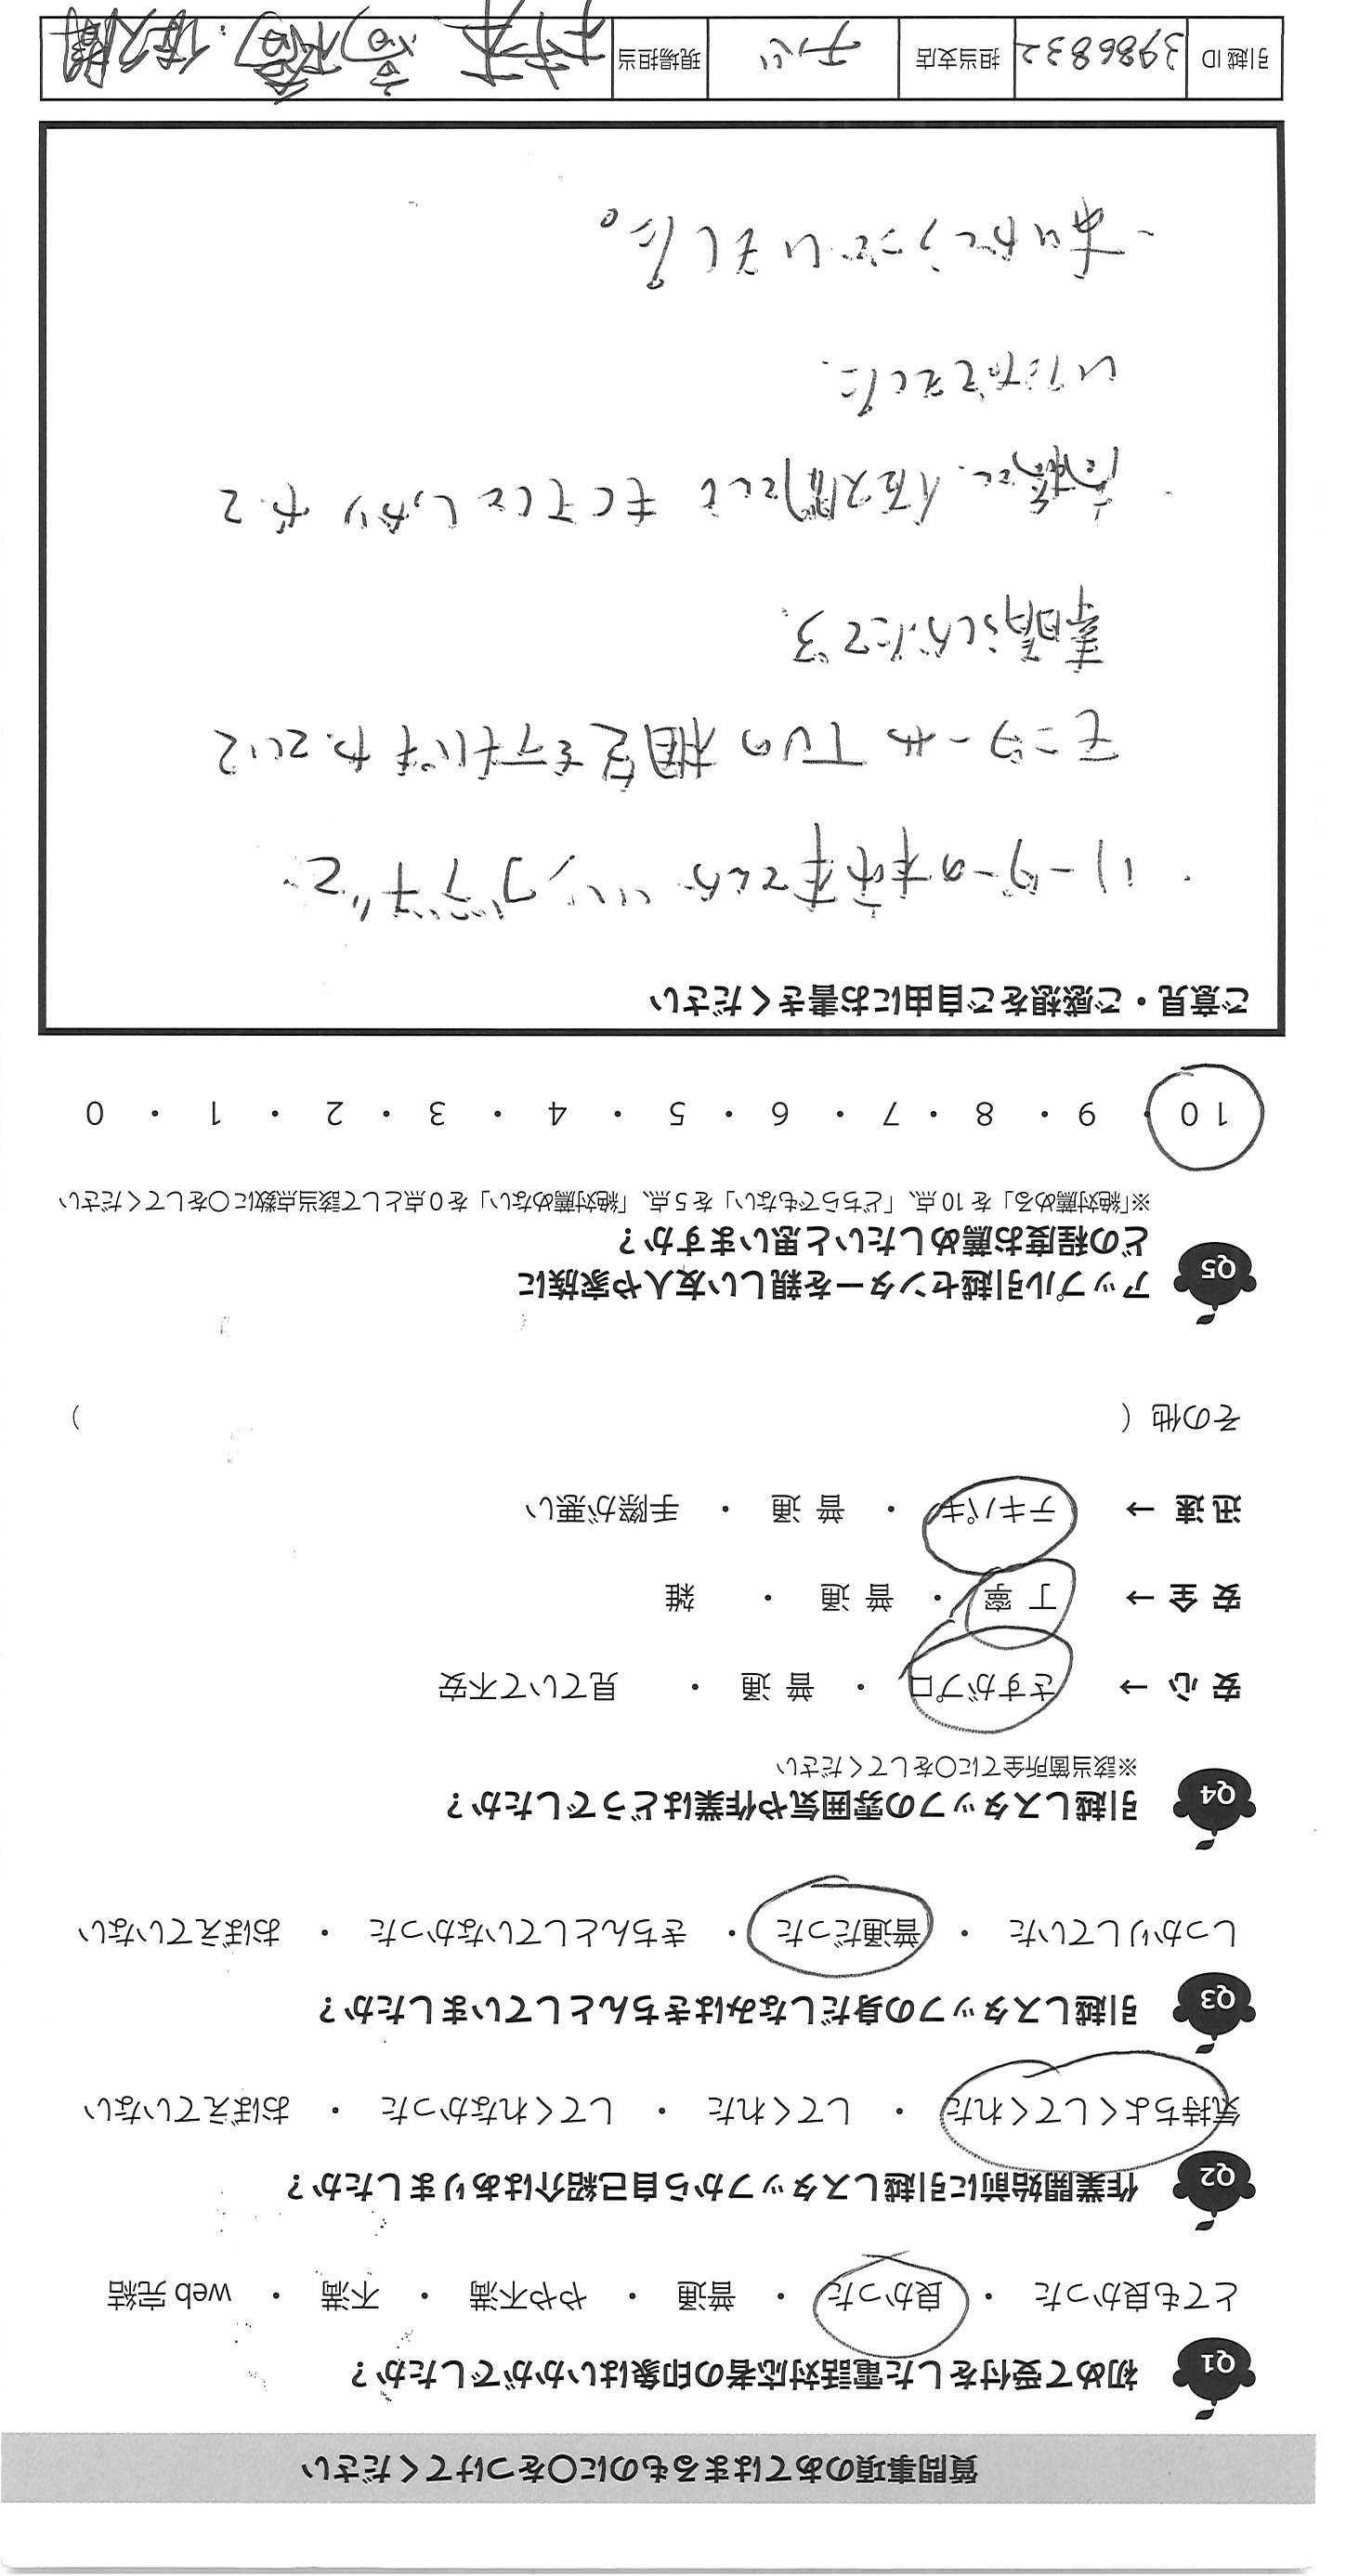 質問事項のあてはまるものに○をつけてください
Q1 初めて受付をした電話対応者の印象はいかがでしたか？
とても良かった ・ 良かった ・ 普通 ・ やや不満 ・ 不満 ・ web 完結
Q2 作業開始前に引越しスタッフから自己紹介はありましたか？
気持ちよくしてくれた ・ してくれた ・ してくれなかった ・ おぼえていない
Q3 引越しスタッフの身だしなみはきちんとしていましたか？
しっかりしていた ・ 普通だった ・ きちんとしていなかった ・ おぼえていない
Q4 引越しスタッフの雰囲気や作業はどうでしたか？
※該当箇所全てに○をしてください
安心 → さすがプロ ・ 普通 ・ 見ていて不安
安全 → 丁寧 ・ 普通 ・ 雑
迅速 → テキパキ ・ 普通 ・ 手際が悪い
その他（ ）
Q5 アップル引越センターを親しい友人や家族に
どの程度お薦めしたいと思いますか？
※「絶対薦める」を 10 点、「どちらでもない」を 5 点、「絶対薦めない」を 0 点として該当点数に○をしてください
10 ・ 9 ・ 8 ・ 7 ・ 6 ・ 5 ・ 4 ・ 3 ・ 2 ・ 1 ・ 0
ご意見・ご感想をご自由にお書きください
・リーダーの
モニターやTVの梱包をテキパキやっていて
素晴らしかったです
高橋さん、佐久間さんも とても しっかり
いただきました。
・ありがとうございました。
引越 ID 3986832 担当支店 千心 現場担当 高橋 佐久間